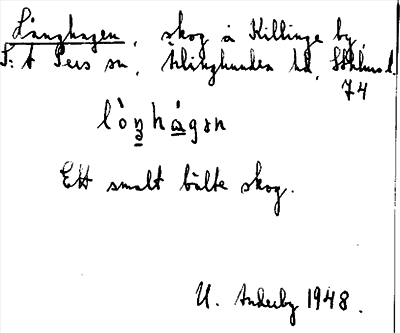 Långhagen, skog å Killinge by,
S:t Pers sn, Ärlinghundra hd, Sthlms l.
74
lòŋhágən
Ett smalt bälte skog.
U. Anderby 1948.